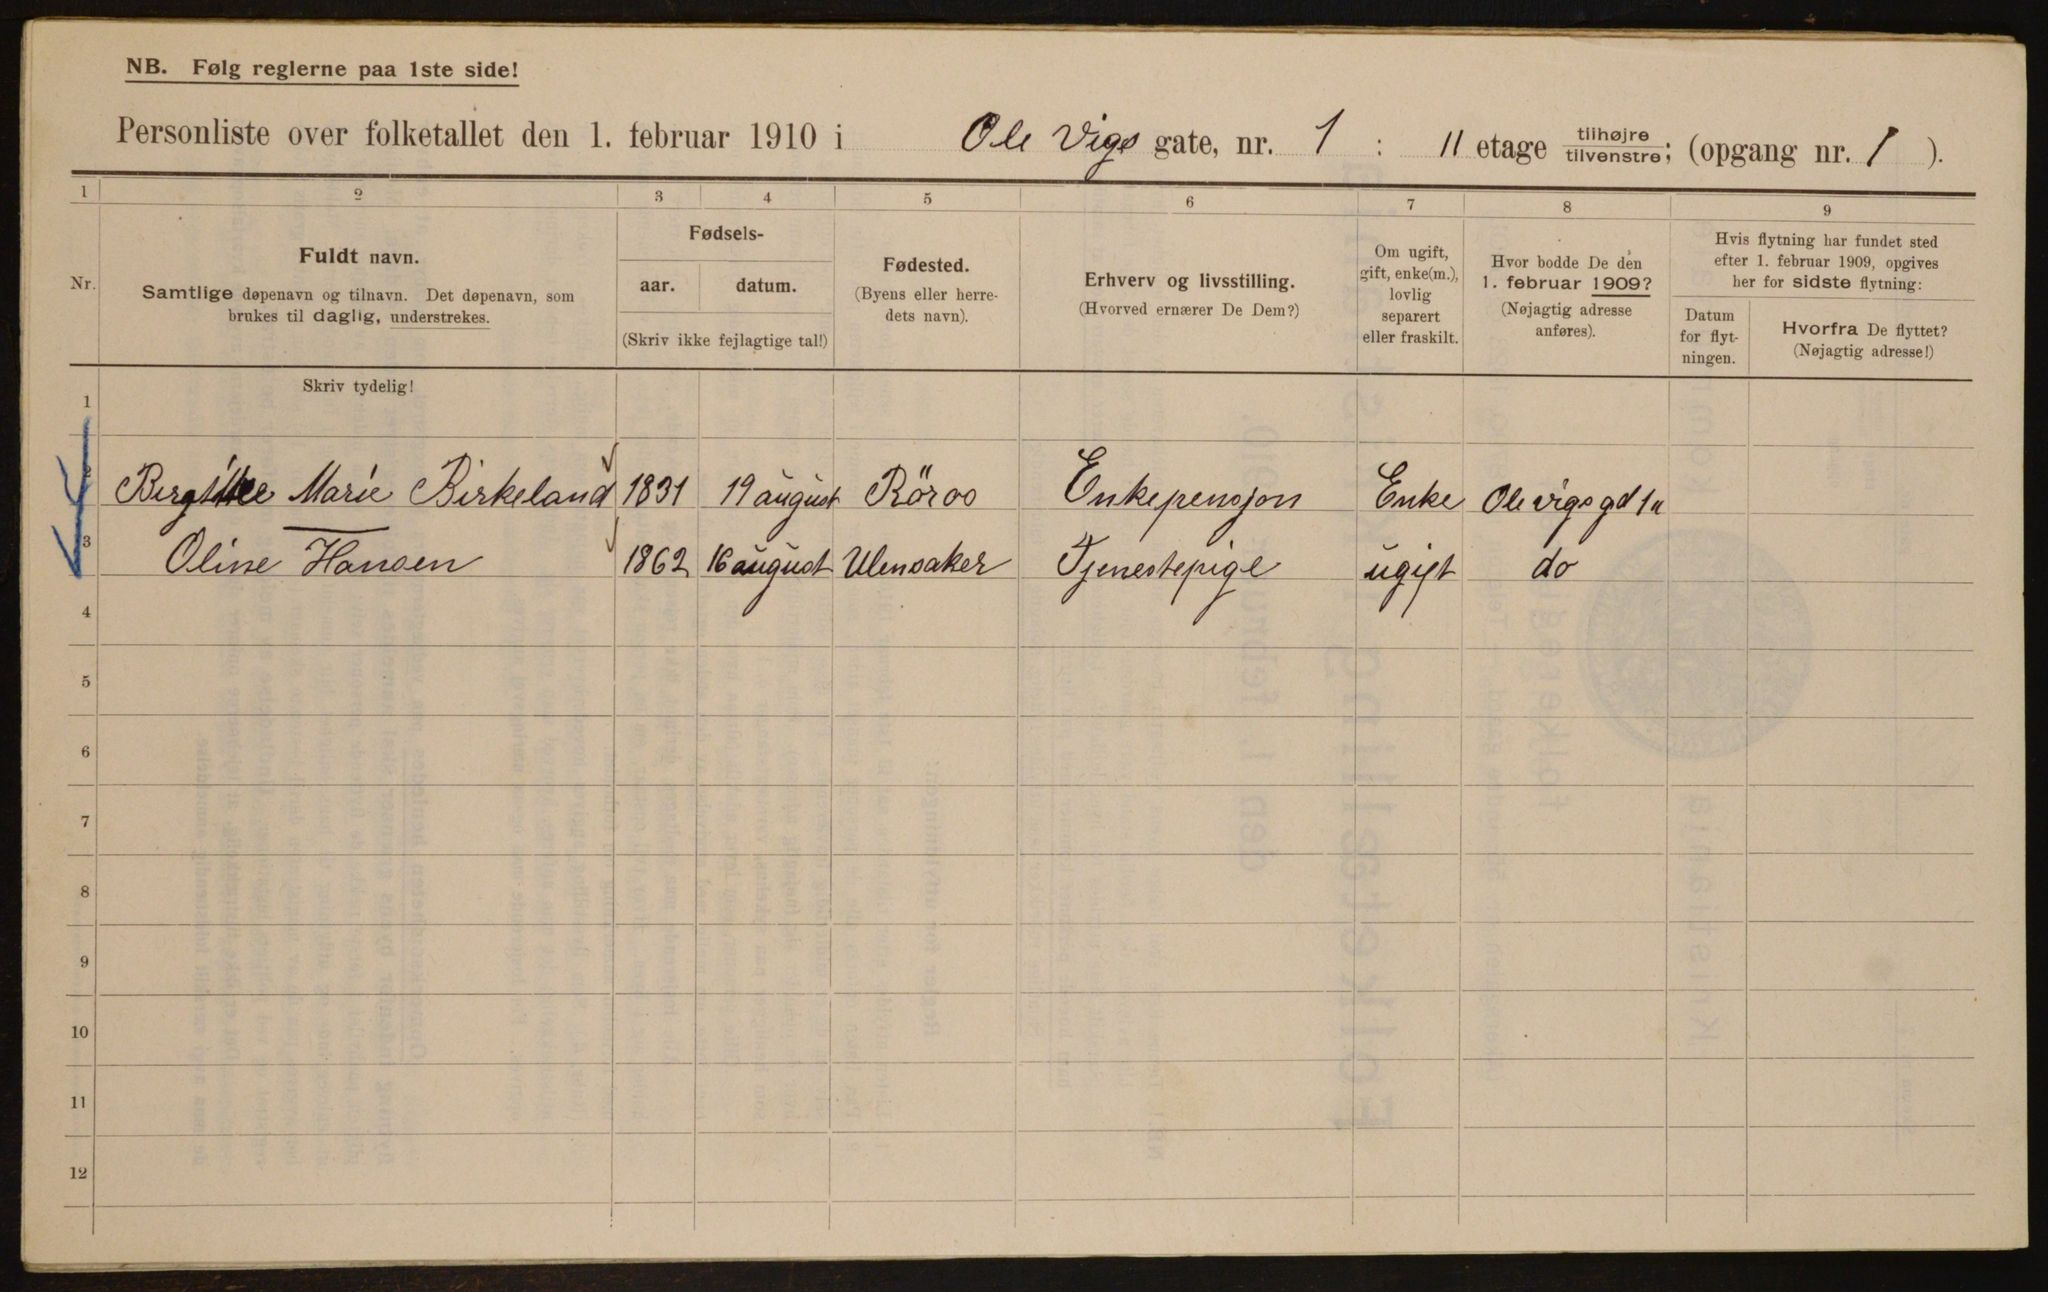 NB. Følg reglerne paa 1ste side!
Personliste over folketallet den 1. februar 1910 i Ole Vigs gate, nr. 1 : 11 etage tilhøjre/tilvenstre; (opgang nr. 1 ).
1 2 3 4 5 6 7 8 9
Nr.
Fuldt navn.
Samtlige døpenavn og tilnavn. Det døpenavn, som
brukes til daglig, understrekes.
Fødsels-
aar. datum.
(Skriv ikke fejlagtige tal!)
Fødested.
(Byens eller herre-
dets navn).
Erhverv og livsstilling.
(Hvorved ernærer De Dem?)
Om ugift,
gift, enke(m.),
lovlig
separert
eller fraskilt.
Hvor bodde De den
1. februar 1909?
(Nøjagtig adresse
anføres).
Hvis flytning har fundet sted
efter 1. februar 1909, opgives
her for sidste flytning:
Datum
for flyt-
ningen.
Hvorfra De flyttet?
(Nøjagtig adresse!)
Skriv tydelig!
1
2 Bergitte Marie Birkeland 1831 19 august Röros Enkepensjon Enke Ole vigs gd 1a
3 Oline Hansen 1862 16 august Ulensaker Tjenestepige ugift do
4
5
6
7
8
9
10
11
12